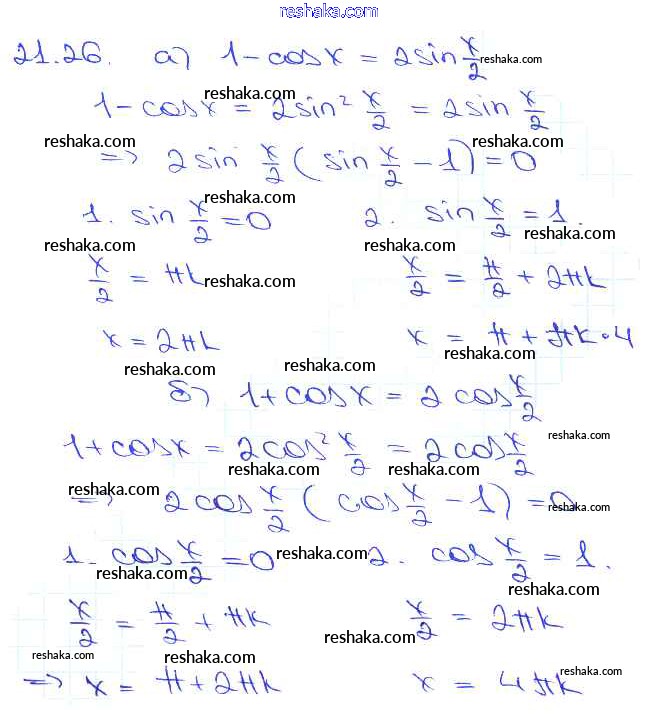 reshaka.com
21.26. а) 1-cosx = 2sin x/2 reshaka.com
1-cosx = 2sin² x/2 = 2sin x/2
reshaka.com
reshaka.com reshaka.com
=> 2sin x/2 (sin x/2 - 1) = 0
reshaka.com
1. sin x/2 = 0 2. sin x/2 = 1.
reshaka.com reshaka.com
x/2 = πk reshaka.com x/2 = π/2 + 2πk
x = 2πk x = π + πk·4
reshaka.com
reshaka.com reshaka.com
б) 1+cosx = 2 cos x/2
reshaka.com
1+cosx = 2cos² x/2 = 2cos x/2
reshaka.com reshaka.com
reshaka.com
=> 2cos x/2 (cos x/2 - 1) = 0
reshaka.com reshaka.com
1. cos x/2 = 0 reshaka.com 2. cos x/2 = 1.
reshaka.com reshaka.com
x/2 = π/2 + πk x/2 = 2πk
reshaka.com
reshaka.com reshaka.com reshaka.com
=> x = π+2πk x = 4πk